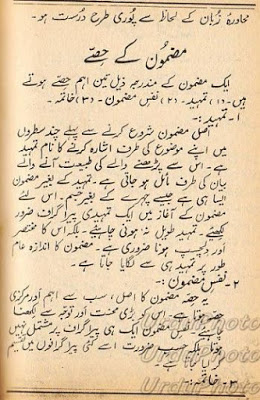 محاورہ زبان کے لحاظ سے پوری طرح درست ہو۔
مضمون کے حصّے
ایک مضمون کے مندرجہ ذیل تین اہم حصّے ہوتے
ہیں۔ (۱) تمہید۔ (۲) نفس مضمون۔ (۳) خاتمہ۔
۱۔ تمہید:۔
اصلی مضمون شروع کرنے سے پہلے چند سطروں
میں اپنے موضوع کی طرف اشارہ کرنے کا نام تمہید
ہے۔ اس سے پڑھنے والے کی طبیعت آنے والے
بیان کی طرف مائل ہو جاتی ہے۔ تمہید کے بغیر مضمون
ایسا ہی ہے جیسے چہرے کے بغیر جسم۔ اس لئے
مضمون کے آغاز میں ایک تمہیدی پیراگراف ضرور
لکھئے۔ تمہید طویل نہ ہونی چاہیئے۔ بلکہ اس کا مختصر
اور دلچسپ ہونا ضروری ہے۔ مضمون کا اندازہ عام
طور پر تمہید ہی سے لگایا جاتا ہے۔
۲۔ نفس مضمون:۔
یہ حصّہ مضمون کا اصل، سب سے اہم اور مرکزی
حصّہ ہوتا ہے۔ اس کو بڑی محنت اور توجہ سے لکھنا
مضمون ایک ہی پیراگراف پر مشتمل نہیں
بلکہ حسب ضرورت اسے کئی پیراگرافوں میں تقسیم
کیا جاتا ہے۔
۳۔ خاتمہ:۔
UrduPhoto
UrduPhoto